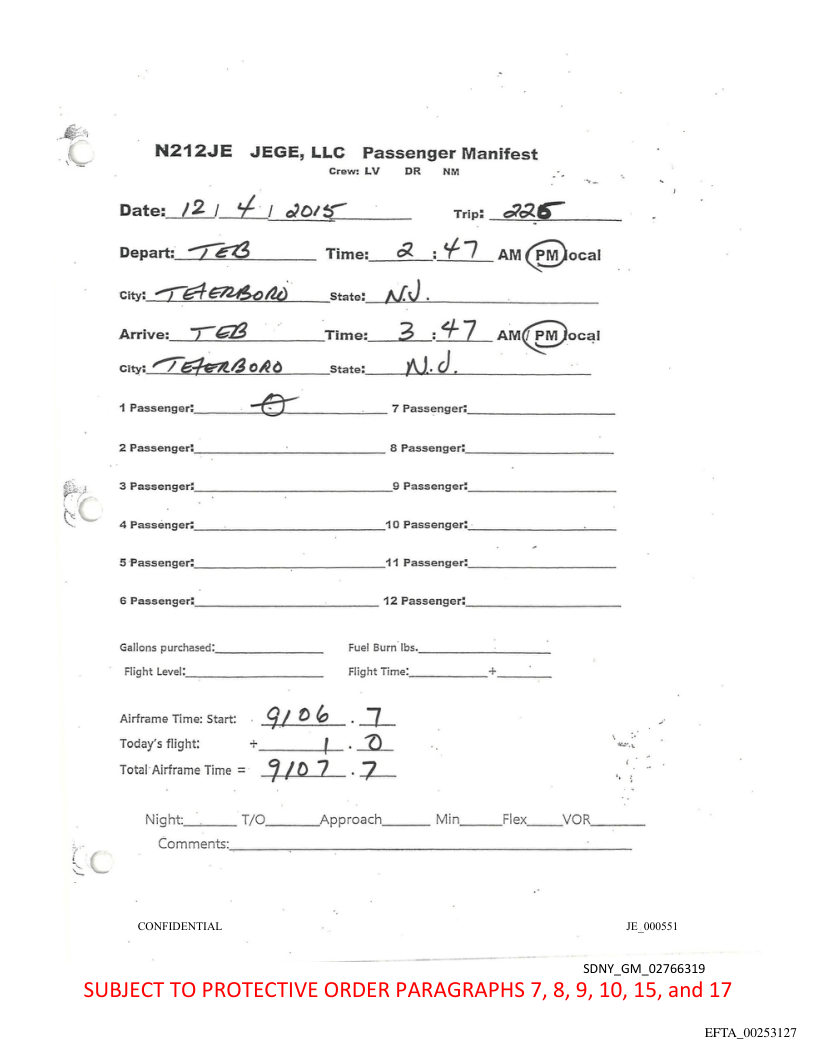 N212JE JEGE, LLC Passenger Manifest
Crew: LV DR NM
Date: 12 / 4 / 2015 Trip: 226
Depart: TEB Time: 2 : 47 AM / PM local
City: TETERBORO State: N.J.
Arrive: TEB Time: 3 : 47 AM / PM local
City: TETERBORO State: N.J.
1 Passenger: 0 7 Passenger:
2 Passenger: 8 Passenger:
3 Passenger: 9 Passenger:
4 Passenger: 10 Passenger:
5 Passenger: 11 Passenger:
6 Passenger: 12 Passenger:
Gallons purchased: Fuel Burn lbs.
Flight Level: Flight Time: +
Airframe Time: Start: 9106 . 7
Today's flight: + 1 . 0
Total Airframe Time = 9107 . 7
Night: T/O Approach Min Flex VOR
Comments:
CONFIDENTIAL JE_000551
SDNY_GM_02766319
SUBJECT TO PROTECTIVE ORDER PARAGRAPHS 7, 8, 9, 10, 15, and 17
EFTA_00253127